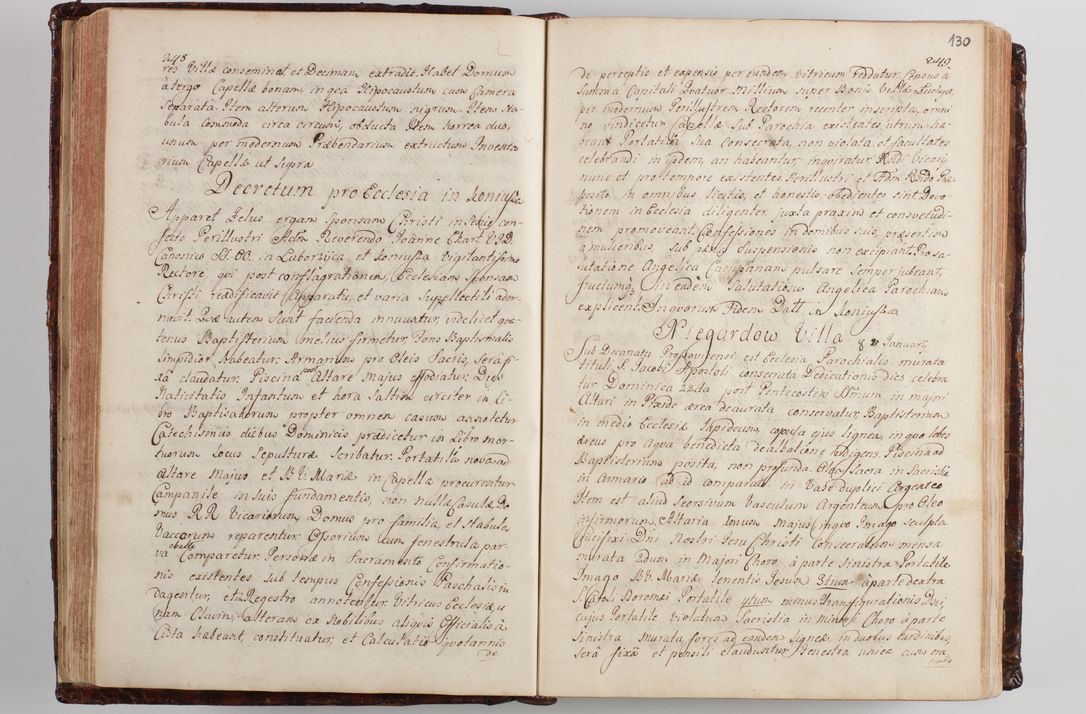 248
res Villæ conseminat et Decimam extradit. Habet Domum
à tergo Capellæ bonam, in qua Hipocaustum cum Camera
separata. Item alterum Hipocaustum nigrum. Item sta-
bula commoda circa circum, obducta Item horrea duo,
unum per modernum Præbendarium extructum Inventa
rium Capellæ ut supra
Decretum pro Ecclesia in Koniusza
Apparet Zelus ergam sponsam Christi in con-
fecto Perillustri Adm Reverendo Joanne Chart
Canonico in Luborzyca, et Koniusza Vigilantissimo
Rectore, qui post conflagrationem, Ecclesiam sponsam
Christi reædificavit Apparatu, et varia Supellectili ador-
navit. Quæ autem sunt facienda innuuntur, videlicet qua-
tenus Baptisterium melius firmetur, Fons Baptismalis
limpidior habeatur. Armarium pro Oleis Sacris, serâ fi-
xâ claudatur. Piscina post Altare majus effodiatur. Dies
Nativitatis Infantum et hora saltim circiter in Li-
bro Baptisatorum propter omnem casum annotetur
Catechismus diebus Dominicis prædicetur in Libro mor-
tuorum Locus Sepulturæ scribatur. Portatilia nova ad
Altare Majus et B.V. Mariæ in Capella procurentur
Campanile in suis fundamentis, non nullæ Casulæ Do-
mus RR Vicariorum, Domus pro familia et stabula
Vaccarum reparentur. Ossorium cum fenestrula par-
va Comparetur. Personæ in Sacramento Confirmatio-
nis existentes sub tempus Confessionis Paschalis in
dagentur, et in Regestro annotentur. Vitricus Ecclesiæ u
nam Clavim, alteram ex Nobilibus aliquis Officialis à
Cista habeant, constituatur, et Calculatio quotannis
de
130
249
de perceptis et expensis per eundem Vitricum reddatur. Census à
summa Capitali Quatuor Millium super Bonis Villæ
per modernum Perillustrem Rectorem recenter inscripta, omni
no vindicetur Capellæ sub Parochia existentes utrum ha-
beant Portatilia sua Consecrata, non violata, et facultates
celebrandi in ijsdem, an habeantur, inquiratur. Rndi Vicarij
nunc et pro tempore existentes Perillustri et Adm Rndo Præ-
posito in omnibus licitis, et honestis obedientes sint Devo-
tionem in Ecclesia diligenter juxta praxim et consvetudi-
nem promoveant. Confessiones in domibus suis præsertim
a mulieribus, sub pœna suspensionis non excipiant. Pro sa-
lutatione Angelica Campanam pulsare semper jubeant,
fructumq in eadem salutatione Angelica Parochianis
explicent. In quorum Fidem Datt in Koniusza
Niegardow Villa 8 20 January
Sub Decanatu Proszovicensi est Ecclesia Parochialis murata
tituli S. Jacobi Apostoli consecrata Dedicationis dies celebra
tur Dominica 22da post Pentecosten SSmum in majori
Altari in Pixide ærea deaurata conservatur, Baptisterium
in medio Ecclesiæ lapideum, copula ejus lignea, in quo lebes
æreus pro aqua benedicta dealbatione indigens. Piscina ad
Baptisterium posita, non profunda. Olea Sacra in Sacristia
in Armario ad id comparato in Vase duplici Argenteo
Item est aliud seorsivum Vasculum Argenteum pro Oleo
infirmorum. Altaria Imum majus, in quo Imago sculpta
Crucifixi Dni Nostri Jesu Christi consecratum mensa
murata 2dum in Majori Choro, à parte sinistra Portatile
Imago B.V. Mariæ tenentis Jesum 3tium à parte dextra
S. Caroli Boromæi Portatile 4tum minus Transfigurationis Dni,
cujus Portatile violatum Sacristia in minori Choro à parte
sinistra murata, fores ad eandem ligneæ in duobus Cardinibus,
serâ fixâ et pensili clauduntur Fenestra unica cum cra